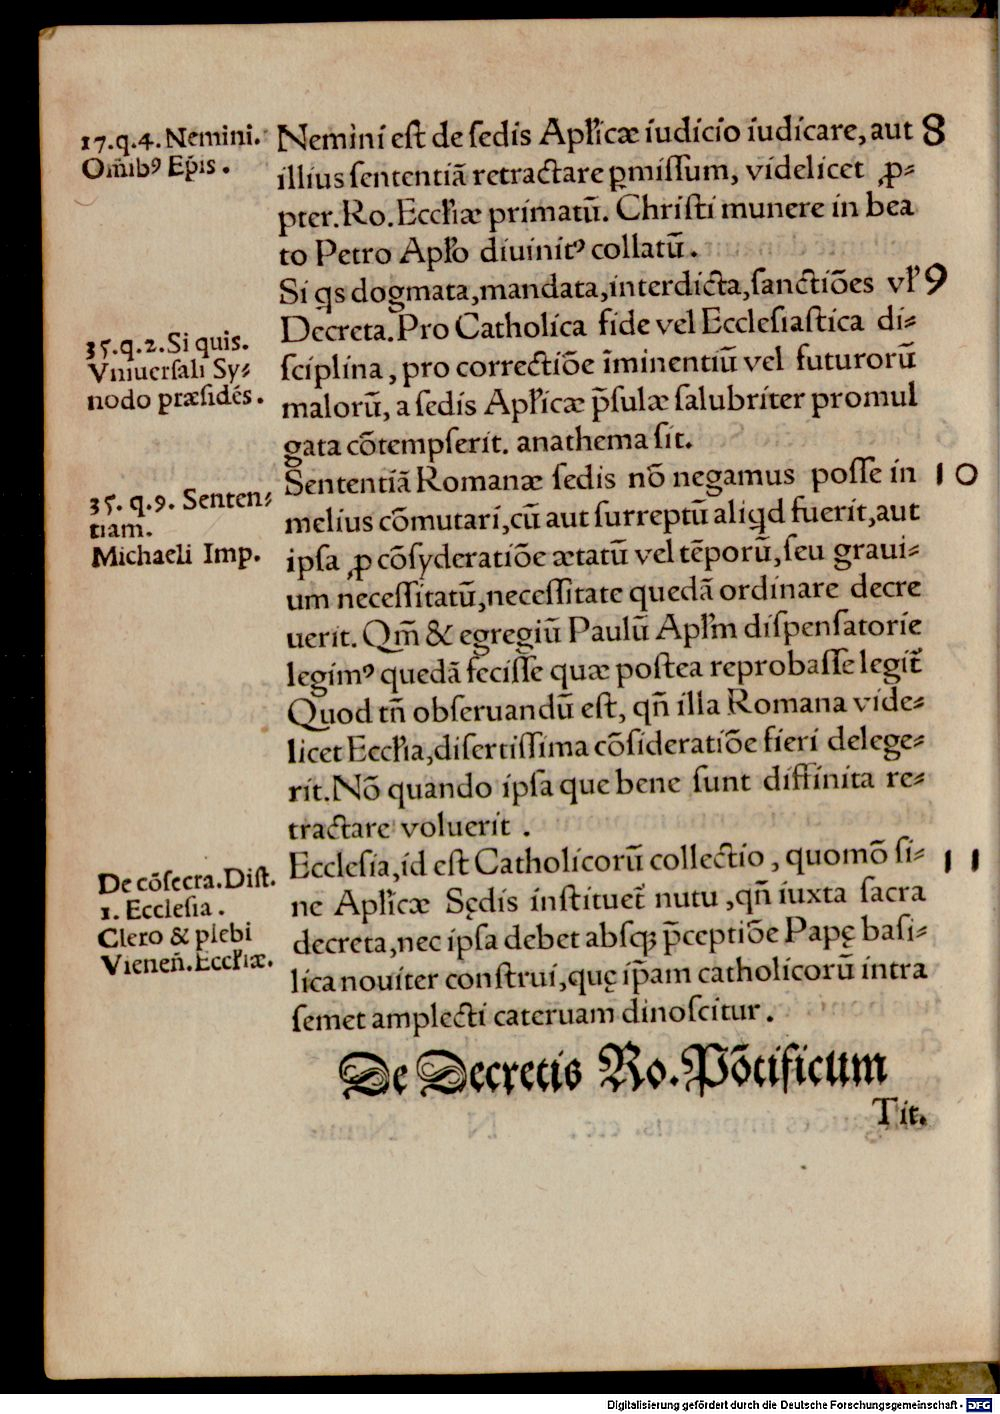 17.q.4. Nemini.
Om̄ibꝰ Ep̄is.
Nemini est de sedis Apl̓icæ iudicio iudicare, aut 8
illius sententiā retractare ꝑmissum, videlicet ꝓ⸗
pter. Ro. Eccl̓iæ primatū. Christi munere in bea
to Petro Apl̓o diuinitꝰ collatū.
35.q.2. Si quis.
Vniuersali Sy⸗
nodo præsidēs.
Si q̇s dogmata, mandata, interdicta, sanctiōes vl̓ 9
Decreta. Pro Catholica fide vel Ecclesiastica di⸗
sciplina, pro correctiōe īminentiū vel futurorū
malorū, a sedis Apl̓icæ p̄sulæ salubriter promul
gata cōtempserit. anathema sit.
35. q.9. Senten⸗
tiam.
Michaeli Imp.
Sententiā Romanæ sedis nō negamus posse in 10
melius cōmutari, cū aut surreptū aliq̇d fuerit, aut
ipsa ꝓ cōsyderatiōe ætatū vel tēporū, seu graui⸗
um necessitatū, necessitate quedā ordinare decre
uerit. Qm̄ & egregiū Paulū Apl̓m dispensatorie
legimꝰ quedā fecisse quæ postea reprobasse legit̄
Quod tn̄ obseruandū est, qn̄ illa Romana vide⸗
licet Eccl̓ia, disertissima cōsideratiōe fieri delege⸗
rit. Nō quando ipsa que bene sunt diffinita re⸗
tractare voluerit .
De cōsecra. Dist.
1. Ecclesia .
Clero & plebi
Vieneñ. Eccl̓iæ.
Ecclesia, id est Catholicorū collectio, quomō si⸗ 11
ne Apl̓icæ Sędis instituet̄ nutu, qn̄ iuxta sacra
decreta, nec ipsa debet absqꝫ p̄ceptiōe Papę basi⸗
lica nouiter construi, quę ip̄am catholicorū intra
semet amplecti cateruam dinoscitur.
De Decretis Ro. Pōtificum
Tit.
Digitalisierung gefördert durch die Deutsche Forschungsgemeinschaft - DFG